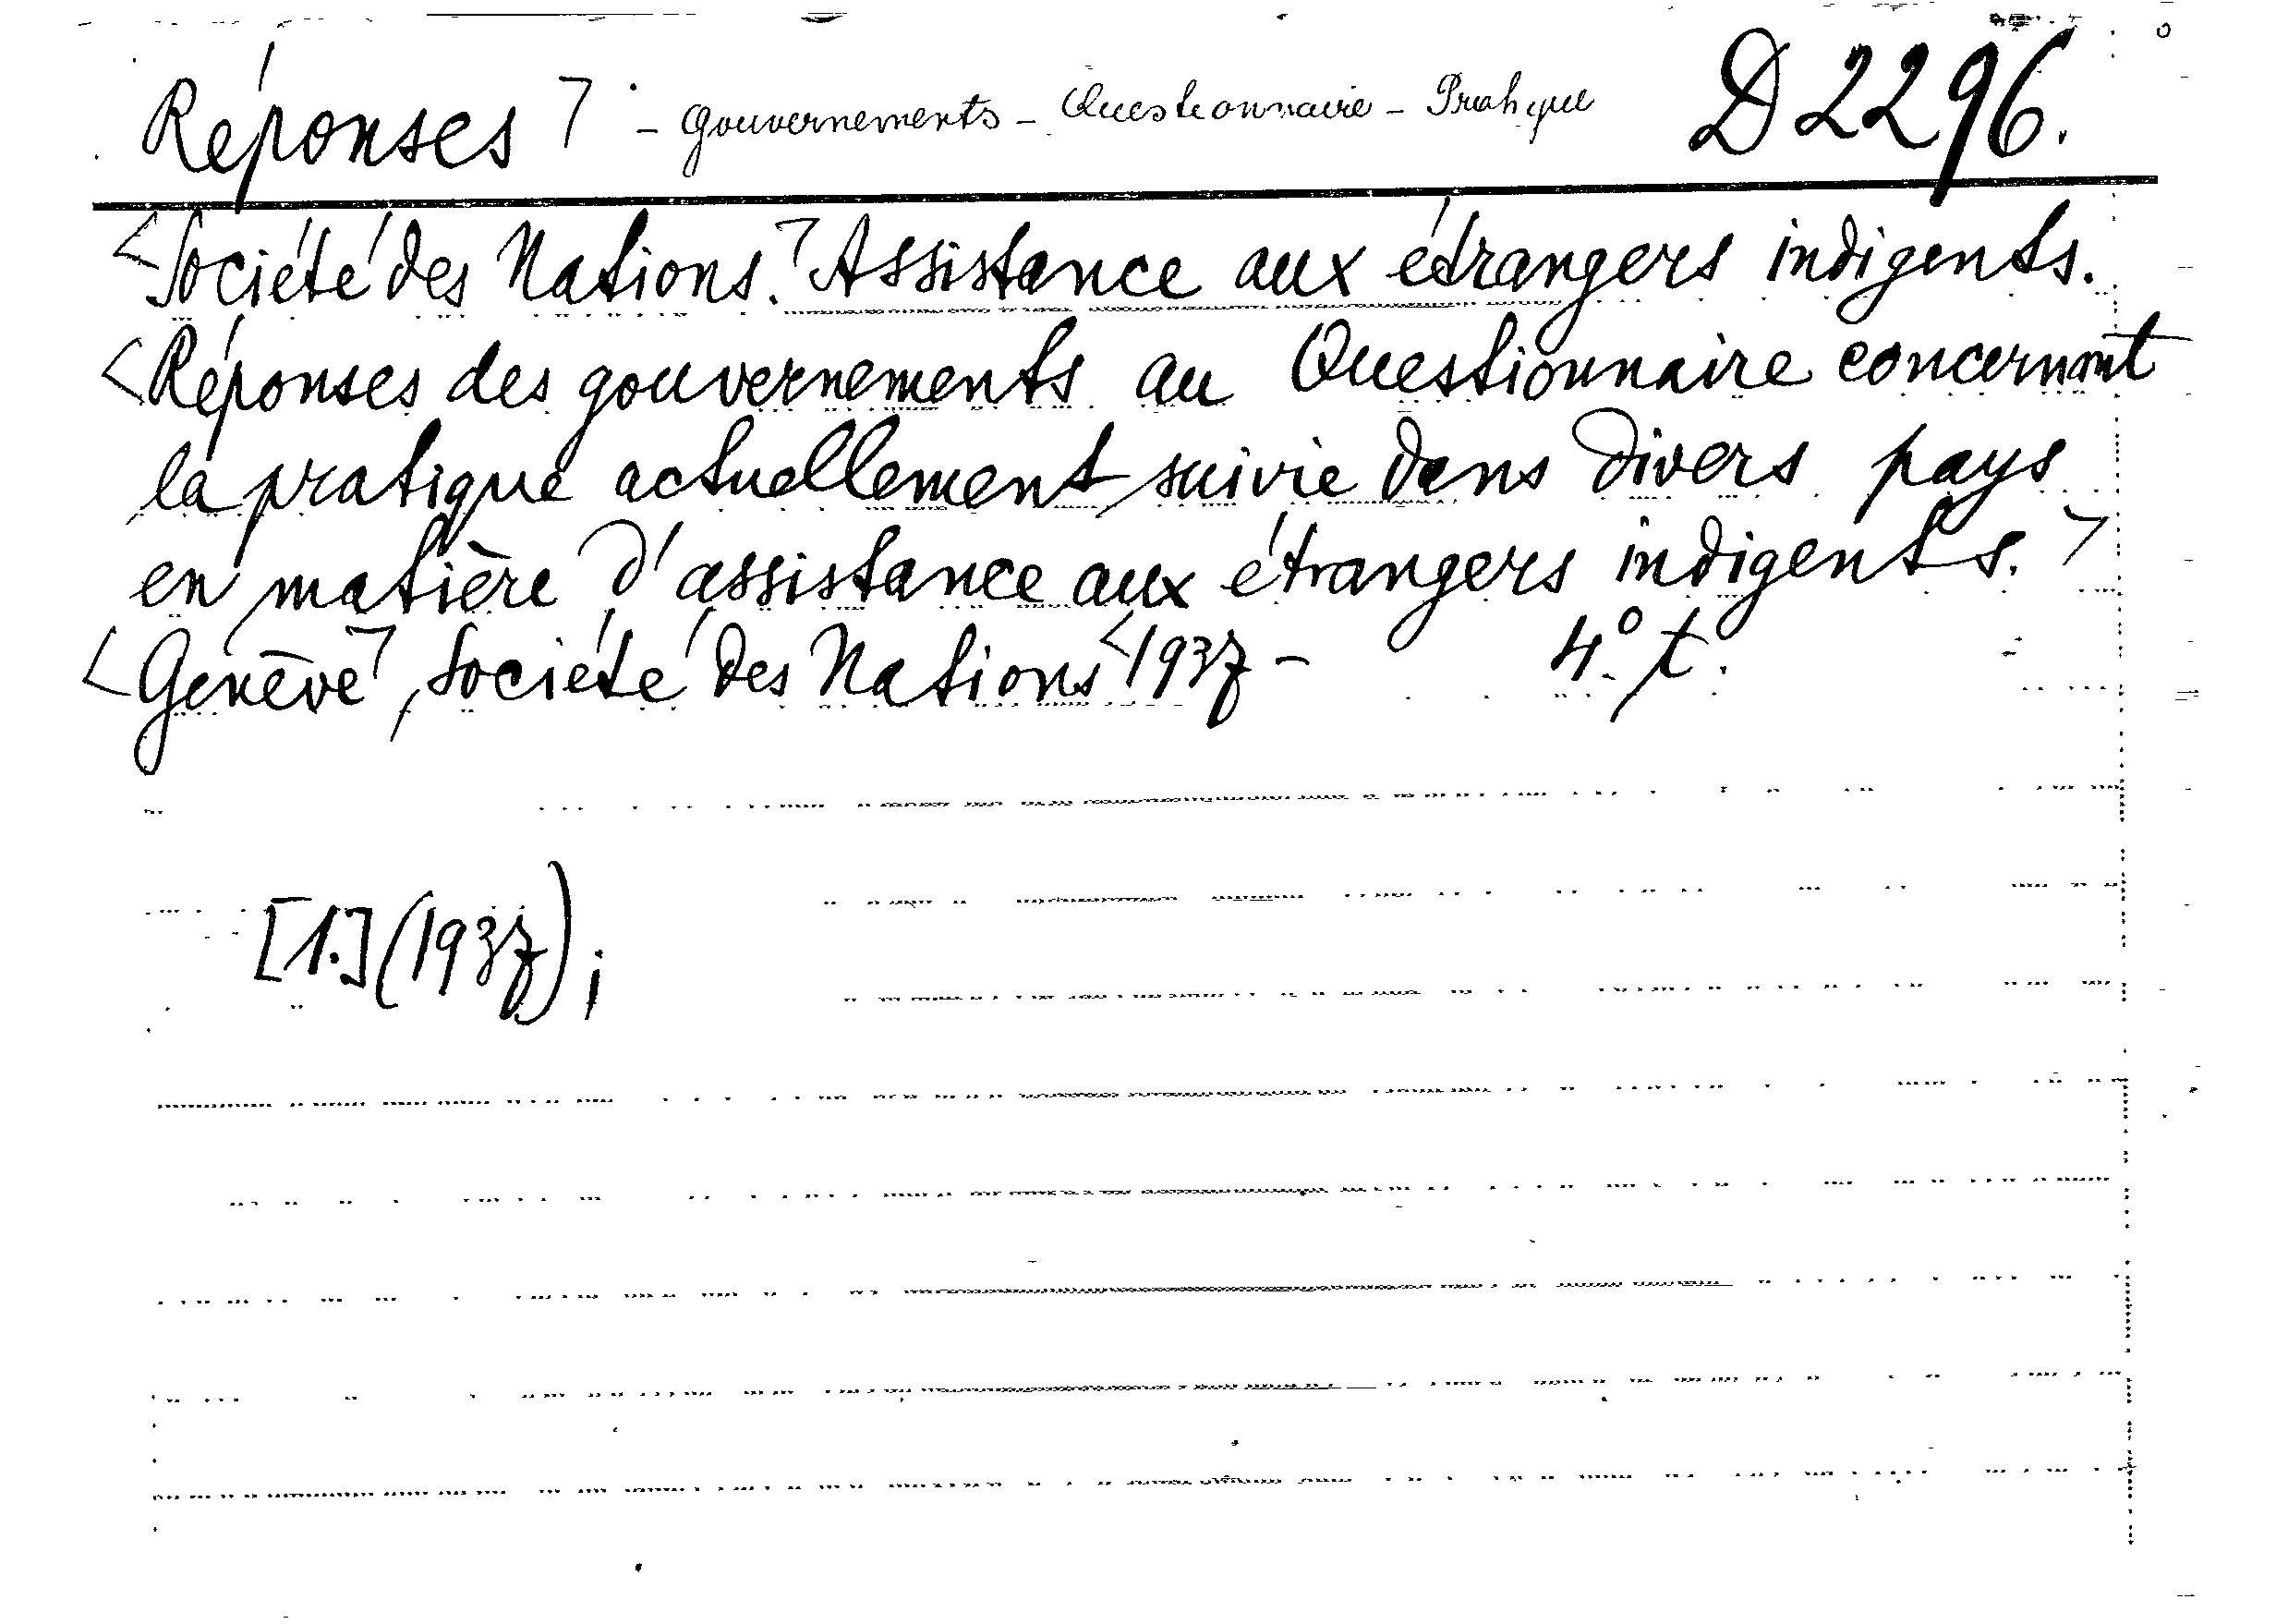 Réponses ⁊ - Gouvernements - Questionnaire - Pratique D 2296.
<Société des Nations.⁊ Assistance aux étrangers indigents.
<Réponses des gouvernements au Questionnaire concernant
la pratique actuellement suivie dans divers pays
en matière d'assistance aux étrangers indigents.⁊
<Genève⁊, Société des Nations <1937 - 4° t.
[1.] (1937);